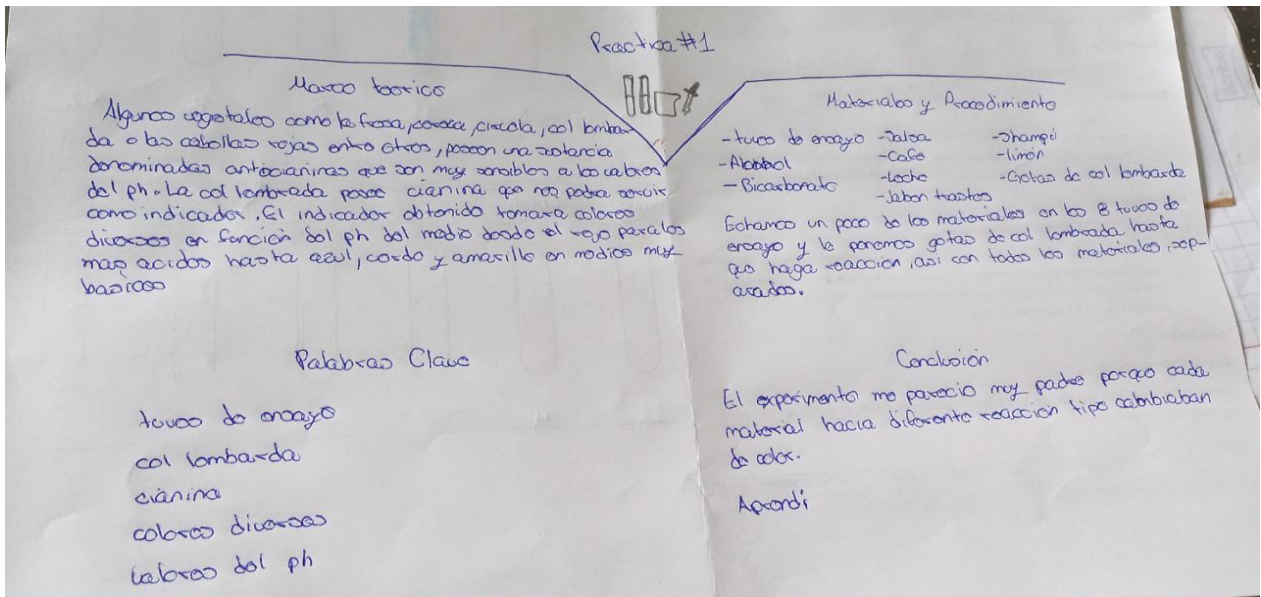 Practica #1
Marco teorico
Algunos vegetales como la fresa, cereza, ciruela, col lombar-
da o las cebollas rojas entre otros, poseen una sustancia
denominadas antocianinas que son muy sensibles a los valores
del ph. La col lombrada posee cianina que nos podra servir
como indicador. El indicador obtenido tomara colores
diversos en función del ph del medio desde el rojo para los
mas acidos hasta azul, verde y amarillo en medios muy
basicos
Palabras Clave
tuvos de ensayo
col lombarda
cianina
colores diversos
valores del ph
Materiales y Procedimiento
-tuvos de ensayo -Salsa -Shampú
-Alcohol -Cafe -limón
-Bicarbonato -Leche -Gotas de col lombarda
-Jabon trastes
Echamos un poco de los materiales en los 8 tuvos de
ensayo y le ponemos gotas de col lombrada hasta
que haga reacción, asi con todos los materiales, sep-
arados.
Conclusión
El experimento me parecio muy padre porque cada
material hacia diferente reaccion tipo cambiaban
de color.
Aprendí